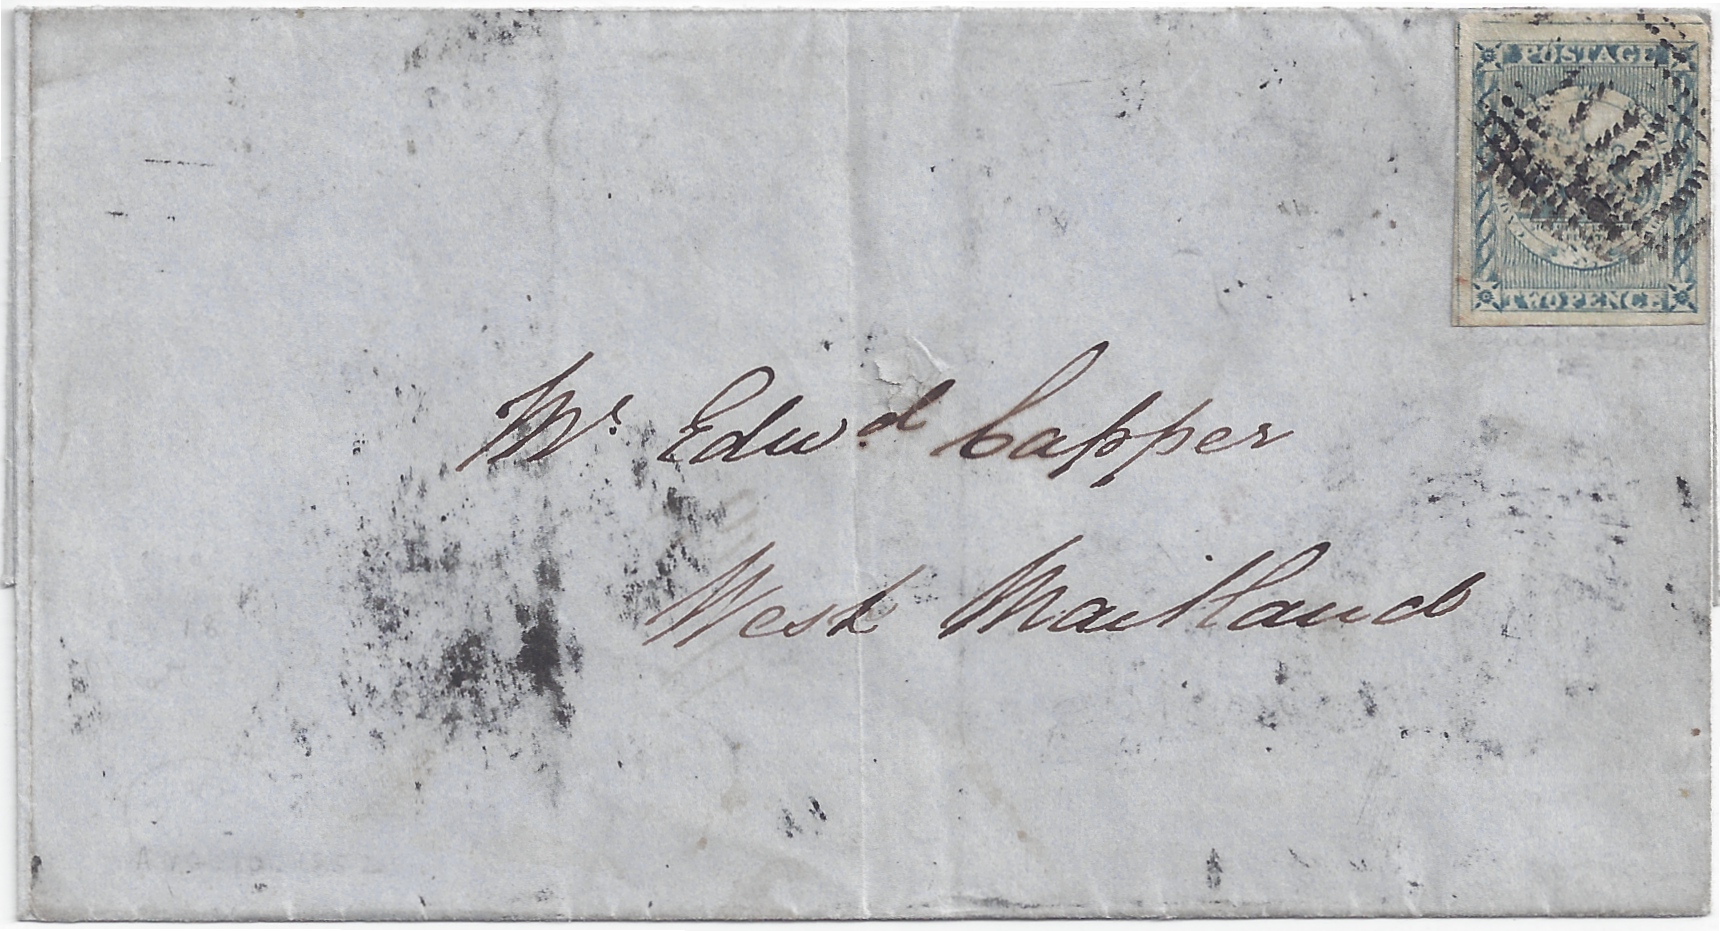 POSTAGE
TWO PENCE
Mr. Edwd Capper
West Maitland